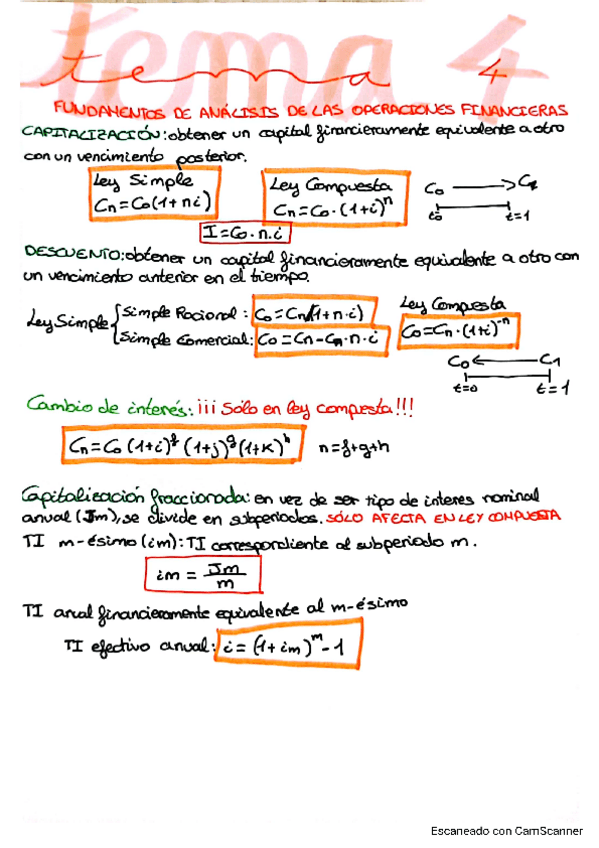 tema 4
tema 4
FUNDAMENTOS DE ANÁLISIS DE LAS OPERACIONES FINANCIERAS
CAPITALIZACIÓN: obtener un capital financieramente equivalente a otro
con un vencimiento posterior.
Ley Simple
Cn=Co(1+ni)
Ley Compuesta
Cn=Co·(1+i)^n
Co → C1
to t=1
I=Co·n·i
DESCUENTO: obtener un capital financieramente equivalente a otro con
un vencimiento anterior en el tiempo.
Ley Simple { Simple Racional: Co=Cn/(1+n·i)
Simple Comercial: Co=Cn-Cn·n·i
Ley Compuesta
Co=Cn·(1+i)^-n
Co ← C1
t=0 t=1
Cambio de interés: ¡¡¡ Sólo en ley compuesta!!!
Cn=Co(1+i)^f (1+j)^g (1+k)^h n=f+g+h
Capitalización fraccionada: en vez de ser tipo de interes nominal
anual (Jm), se divide en subperiodos. SÓLO AFECTA EN LEY COMPUESTA
TI m-ésimo (im): TI correspondiente al subperiodo m.
im = Jm/m
TI anual financieramente equivalente al m-ésimo
TI efectivo anual: i=(1+im)^m-1
Escaneado con CamScanner